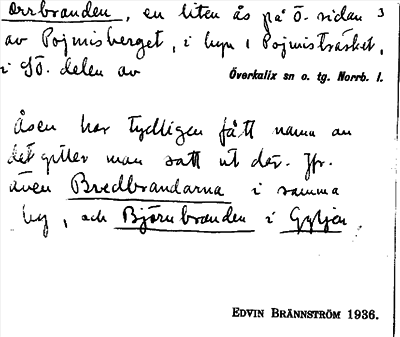 Orrbranden, en liten ås på Ö. sidan 3
av Pojmisberget, i byn Pojmisträsket,
i SÖ. delen av Överkalix sn o. tg. Norrb. l.
Åsen har tydligen fått namn av
det giller man satt ut där. Jfr.
även Bredbrandarna i samma
by, och Björnbranden i Gyljen.
EDVIN BRÄNNSTRÖM 1936.